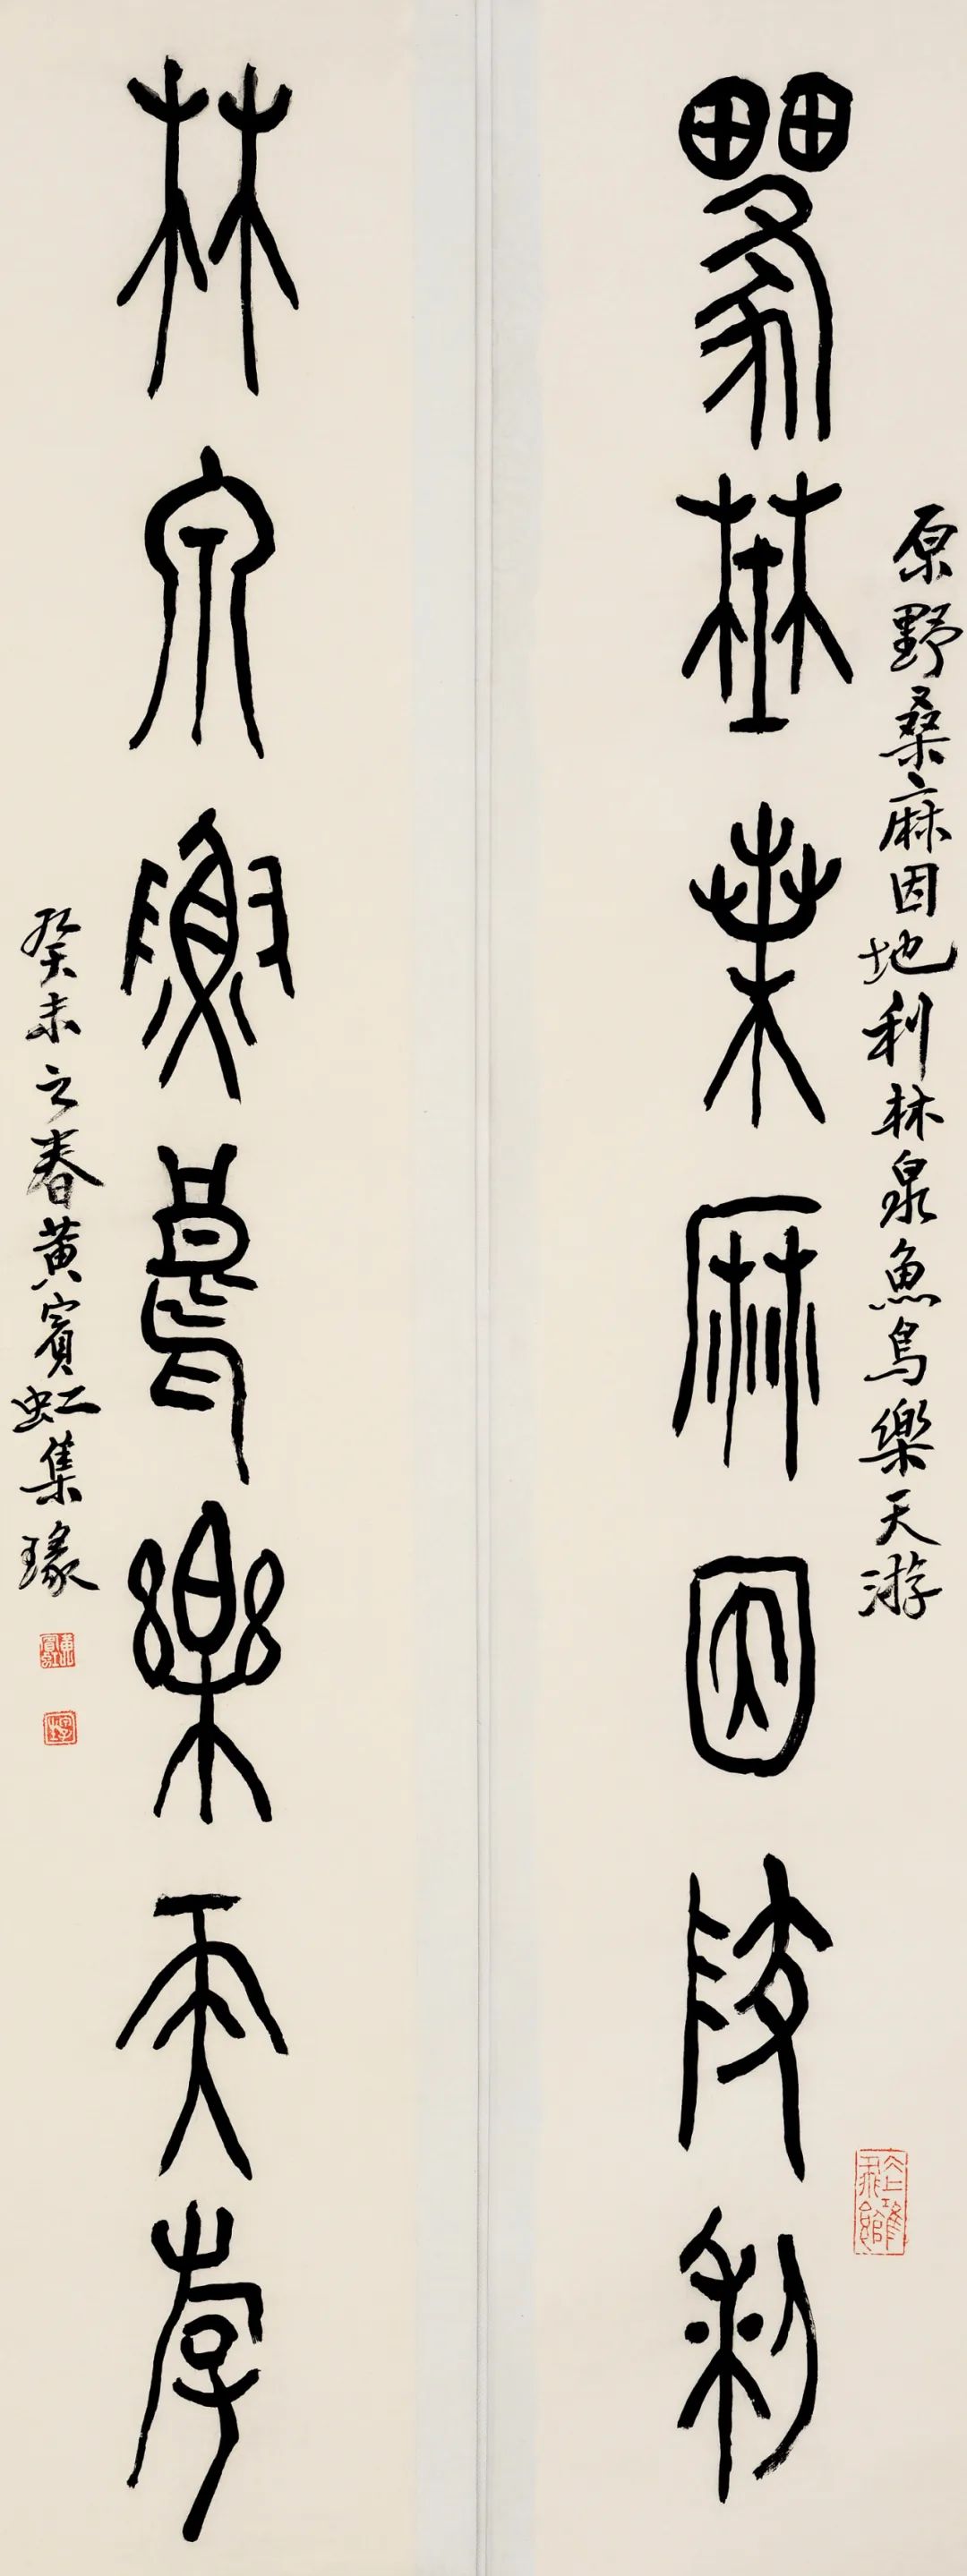 原野桑麻因地利林泉魚鳥樂天游
邍埜桑麻因地利
林泉魚鳥樂天游
癸未之春黃賓虹集瑑
黃賓虹